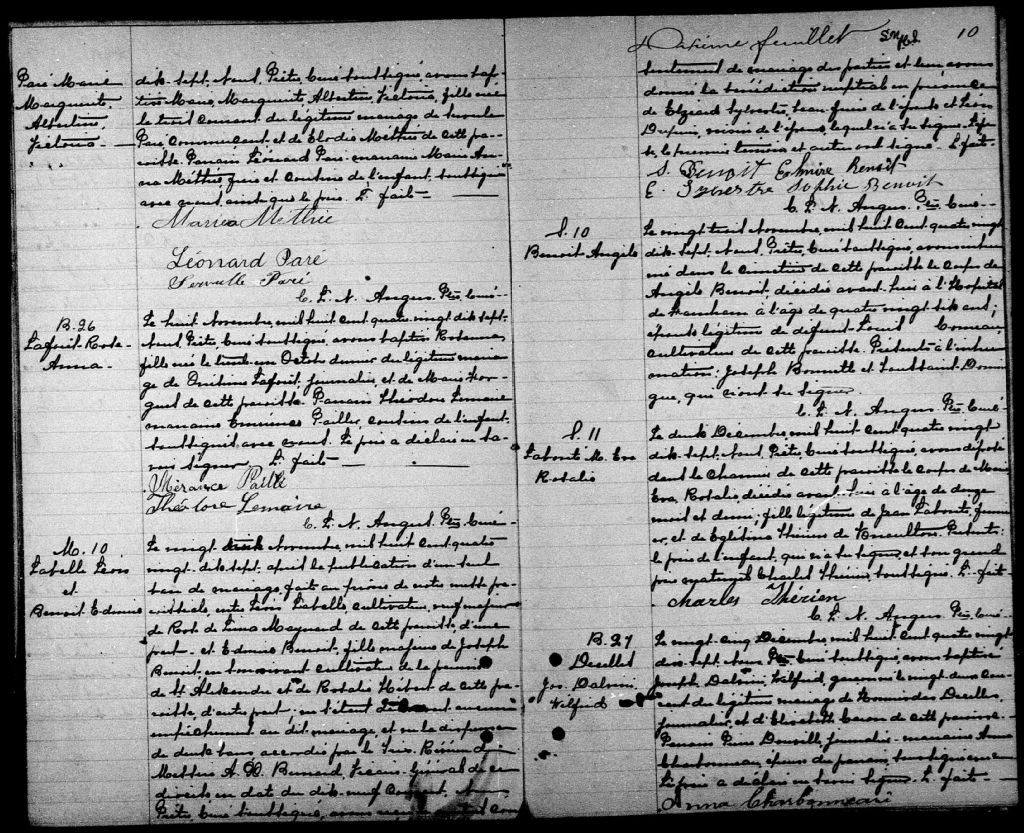 Paré Marie
Marguerite,
Albertine,
Victoria
dix-sept, Nous, Prêtre, Curé soussigné, avons bap-
tisé Marie, Marguerite, Albertine, Victoria, fille née
le huit courant du légitime mariage de Servule
Paré, commerçant, et de Elodie Méthée de cette pa-
roisse. Parrain Léonard Paré marraine Marie An-
na Méthée, et cousine de l'enfant, soussignés
avec nous, ainsi que le père. L. fait
Marie a Méthée
Léonard Paré
Servulle Paré
C. L. N. Angers Ptre Curé
B. 26
Rose-
Anna
Le huit Novembre, mil huit cent quatre vingt dix sept,
Nous Prêtre, Curé soussigné, avons baptisé Roseanna,
fille née le trente-un Octobre dernier du légitime maria-
ge de journalier, et de Marie
de cette paroisse. Parrain Théodore Lemaire
marraine Pailler, cousins de l'enfant,
soussignés avec nous. Le père a déclaré ne sa-
voir signer. L. fait
Mérance Paillé
Théodore Lemaire
C. L. N. Angers Ptre Curé
M. 10
Labelle Léon
et
Benoit Edmire
Le vingt Novembre, mil huit cent quatre
vingt dix-sept, après la publication d'un seul
ban de mariage, fait au prône de notre messe pa-
roissiale, entre Léon Labelle, cultivateur, veuf majeur
de Rose de Lima Maynard de cette paroisse, d'une
part; et Edmire Benoit, fille majeure de Joseph
Benoit, en son vivant cultivateur de la paroisse
de St Alexandre et de Rosalie Hébert de cette pa-
roisse, d'autre part; ne s'étant aucun
empêchement au dit mariage, et vu la dispense
de deux bans accordée par le Très Révérend
Messire A. X. Bernard, Vicaire Général de ce
diocèse en date du dix-neuf courant, Nous,
Prêtre, Curé soussigné, avons
Dixième feuillet 10
consentement de mariage des parties et leur avons
donné la bénédiction nuptiale en présence
de Elzéard Sylvestre, beau-frère de l'épouse et Léon
Dupuis, voisin de l'époux, lequel n'a su signer. L'épou-
se, le premier témoin et autres ont signé. L. fait
S. Benoit Edmire Benoit
E. Sylvestre Sophie Benoit
C. L. N. Angers Ptre Curé
S. 10
Benoit Angèle
Le vingt trois Novembre, mil huit cent quatre vingt
dix-sept, Nous, Prêtre, Curé soussigné, avons inhu-
mé dans le cimetière de cette paroisse le corps de
Angèle Benoit, décédée avant hier à l'Hospice
de Farnham à l'âge de quatre vingt six ans;
épouse légitime de défunt Louis Comeau,
cultivateur de cette paroisse. Présents à l'inhu-
mation: Joseph Bonnette et Toussaint Domin
gue, qui n'ont su signer.
C. L. N. Angers Ptre Curé
S. 11
Laborte M. Eva
Rosalie
Le deux Décembre, mil huit cent quatre vingt
dix-sept, Nous, Prêtre, Curé soussigné, avons déposé
dans le Charnier de cette paroisse le corps de Marie
Eva, Rosalie, décédée avant-hier à l'âge de
mois et demi; fille légitime de Jean Laborte,
et de Eglétine Thérien de Présents:
le père de l'enfant, qui n'a su signer, et son grand
père maternel Charles Thérien, soussigné. L. fait
Charles Thérien
C. L. N. Angers Ptre Curé
B. 27
Jos. Dalmi
Wilfrid
Le vingt cinq Décembre, mil huit cent quatre vingt
dix-sept, Nous Ptre Curé soussigné, avons baptisé
Joseph Dalmi, Wilfrid, garçon né le vingt deux cou-
rant du légitime mariage de
journalier, et d'Elisabeth de cette paroisse.
Parrain Pierre journalier, marraine Anna
Charbonneau, épouse du parrain, soussignée
Le père a déclaré ne savoir signer. L. fait
Anna Charbonneau